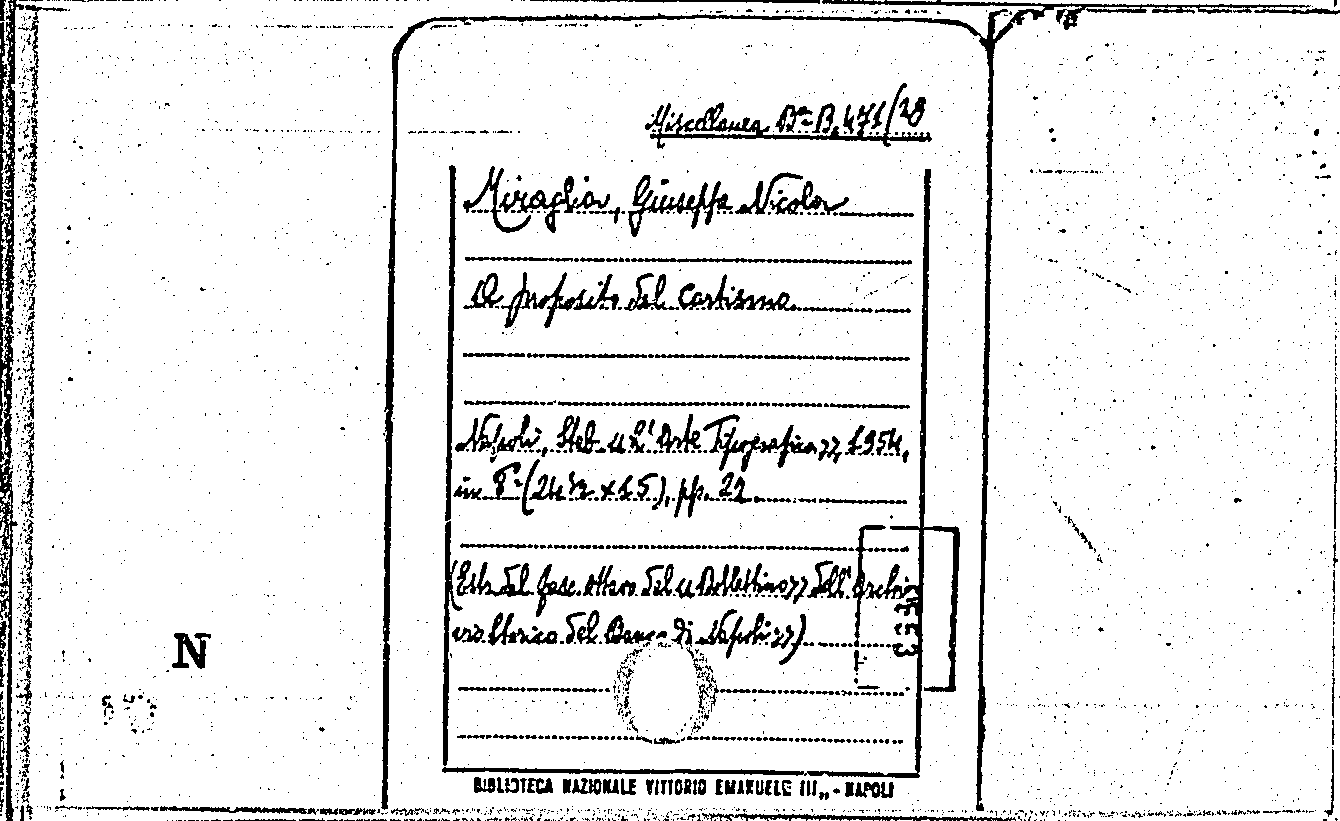 Miscellanea Bª B. 471/28
Miraglia, Giuseppe Nicola
A proposito del cartismo
Napoli, Stab. « L'Arte Tipografica », 1954,
in 8º (24½ x 15), pp. 22
(Estr. dal fasc. ottavo del « Bollettino » dell' Archi
vio Storico del Banco di Napoli »)
N
BIBLIOTECA NAZIONALE VITTORIO EMANUELE III„ - NAPOLI